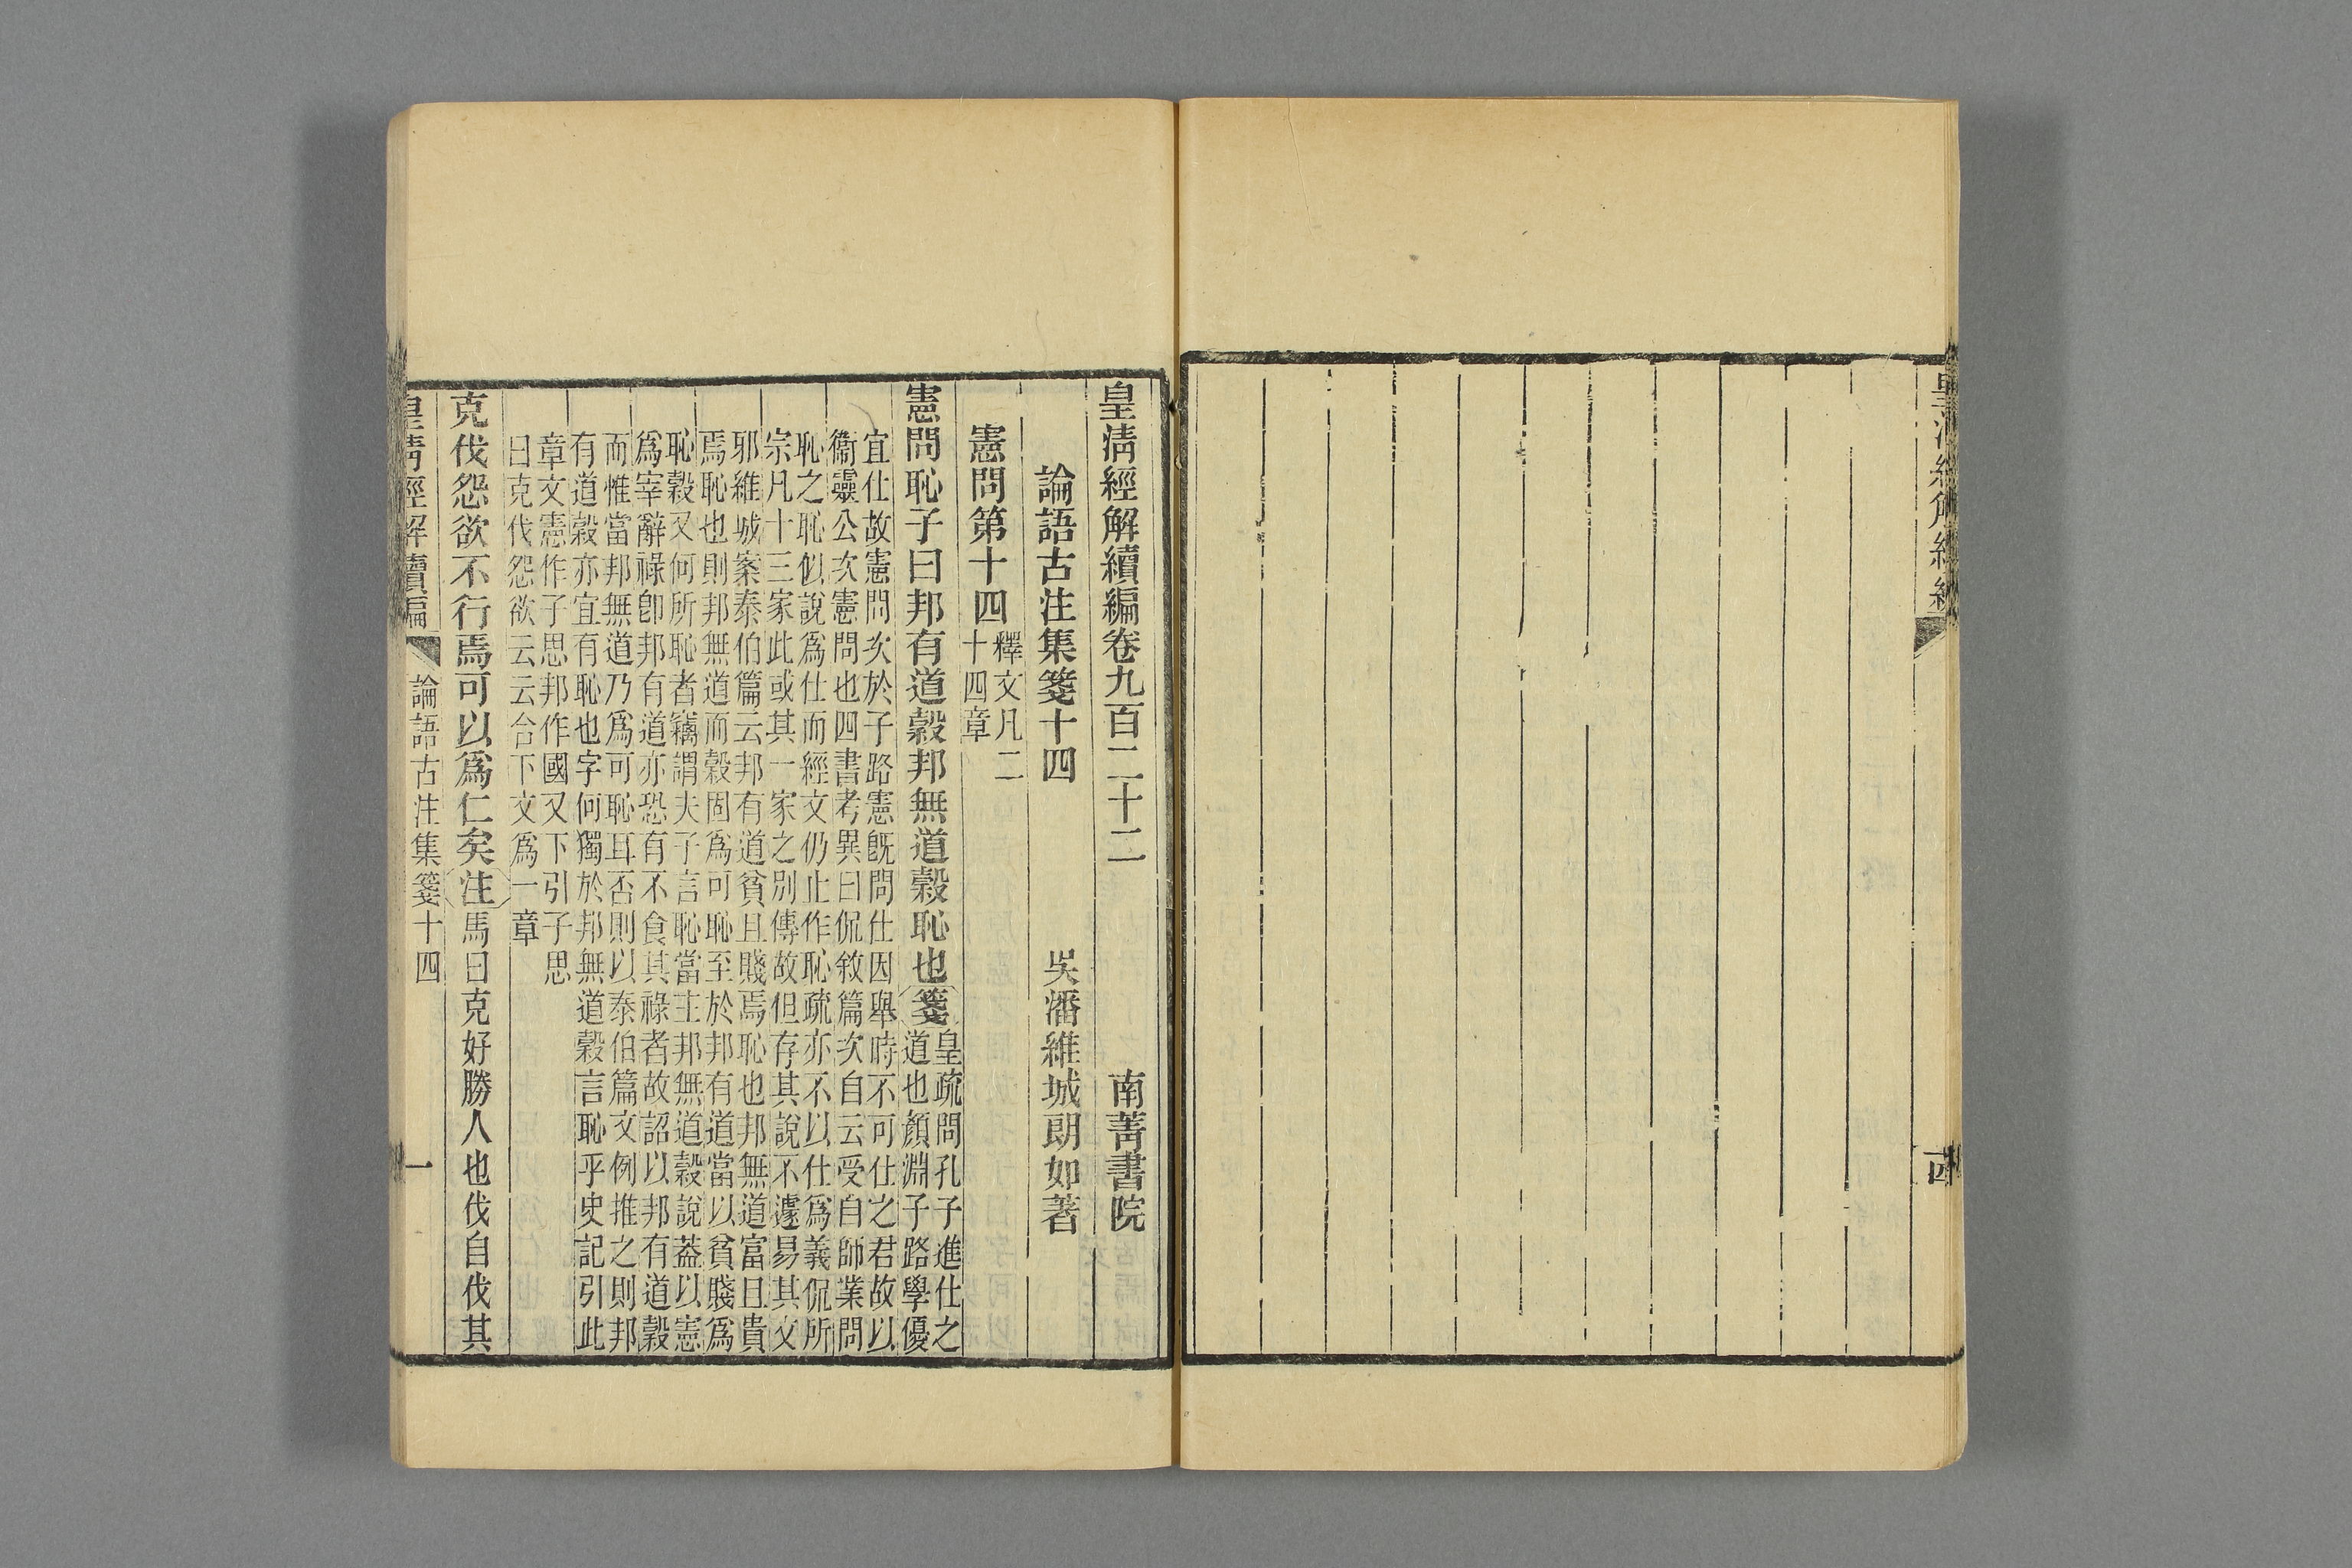 皇清經解續編
四
皇清經解續編卷九百二十二　南菁書院
論語古注集箋十四　吳潘維城朗如著
憲問第十四
釋文凡二
十四章
憲問恥子曰邦有道穀邦無道穀恥也箋
皇疏問孔子進仕之
道也顏淵子路學優
宜仕故憲問次於子路憲旣問仕因舉時不可仕之君故以
衞靈公次憲問也四書考異曰侃敘篇次自云受自師業問
恥之恥似說爲仕而經文仍止作恥疏亦不以仕爲義侃所
宗凡十三家此或其一家之別傳故但存其說不遽易其文
邪維城案泰伯篇云邦有道貧且賤焉恥也邦無道富且貴
焉恥也則邦無道而穀固爲可恥至於邦有道當以貧賤爲
恥穀又何所恥者竊謂夫子言恥當主邦無道穀說葢以憲
爲宰辭祿卽邦有道亦恐有不食其祿者故詔以邦有道穀
而惟當邦無道乃爲可恥耳否則以泰伯篇文例推之則邦
有道穀亦宜有恥也字何獨於邦無道穀言恥乎史記引此
章文憲作子思邦作國又下引子思
曰克伐怨欲云云合下文爲一章
克伐怨欲不行焉可以爲仁矣注馬曰克好勝人也伐自伐其
皇清經解續編　論語古注集箋十四　一